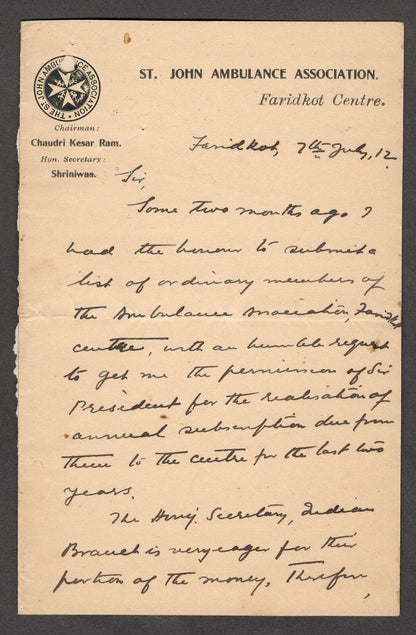 THE ST JOHN AMBULANCE ASSOCIATION
ST. JOHN AMBULANCE ASSOCIATION.
Faridkot Centre.
Chairman:
Chaudri Kesar Ram.
Hon. Secretary:
Shriniwas.
Faridkot, 7th July, 12
Sir,
Some two months ago I
had the honour to submit a
list of ordinary members of
the Ambulance Association, Faridkot
centre, with an humble request
to get me the permission of Sir
President for the realisation of
annual subscription due from
them to the centre for the last two
years.
The Hony. Secretary, Indian
Branch is very eager for their
portion of the money. Therefore,